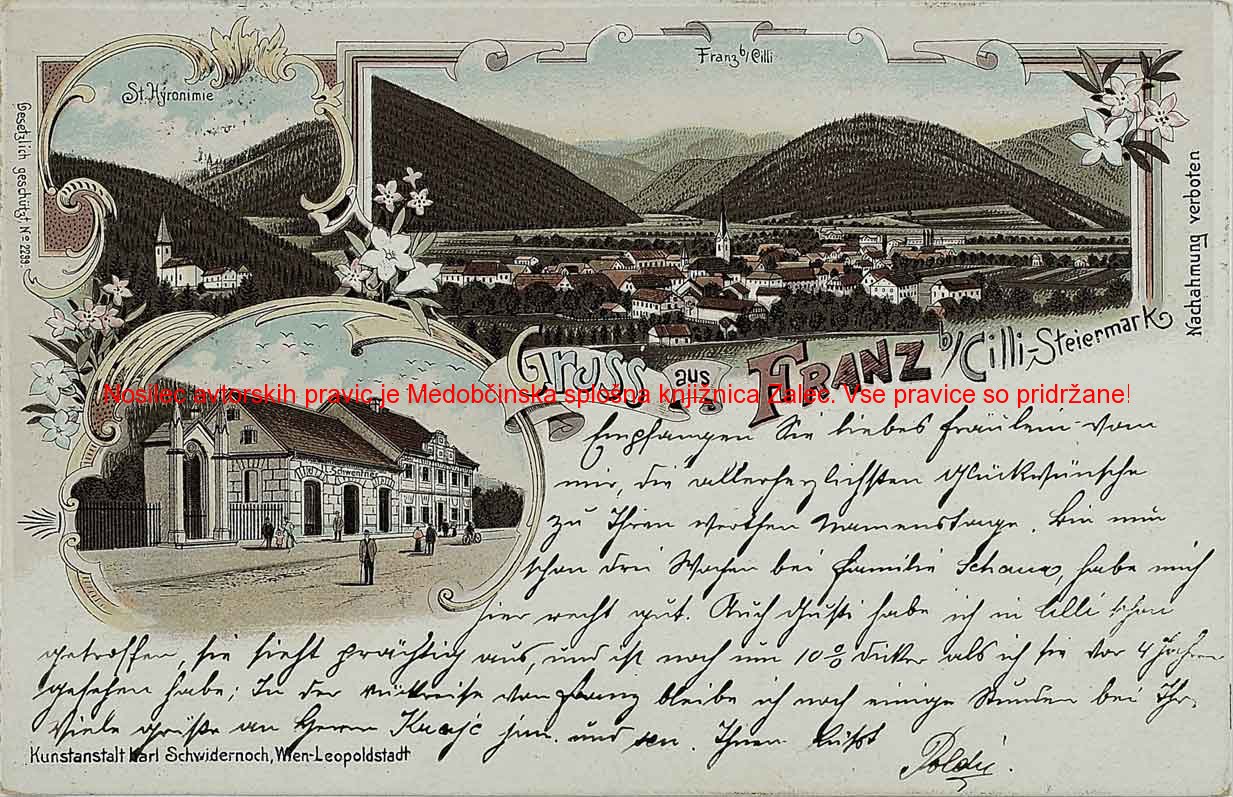 St. Hÿronimie
Franz b/ Cilli
Gesetzlich geschützt No 2289.
Nachahmung verboten
Gruss aus FRANZ b/ Cilli-Steiermark
Nosilec avtorskih pravic je Medobčinska splošna knjižnica Žalec. Vse pravice so pridržane!
Schwentner
Empfangen Sie liebes Fräulein von
mir, die allerherzlichsten Glückwünsche
zu Ihren werthen Namenstage. Bin nun
schon drei Wochen bei Familie Schaux, habe mich
hier recht gut. Auch Gusti habe ich in Cilli schon
getroffen, sie sieht prächtig aus, und ist noch um 10 % dicker als ich sie vor 4 Jahren
gesehen habe; In der rückreise von Franz bleibe ich noch einige Stunden bei Ihr.
Viele Grüße an Herrn jun. und sen. Ihnen küsst
Poldi.
Kunstanstalt Karl Schwidernoch, Wien-Leopoldstadt